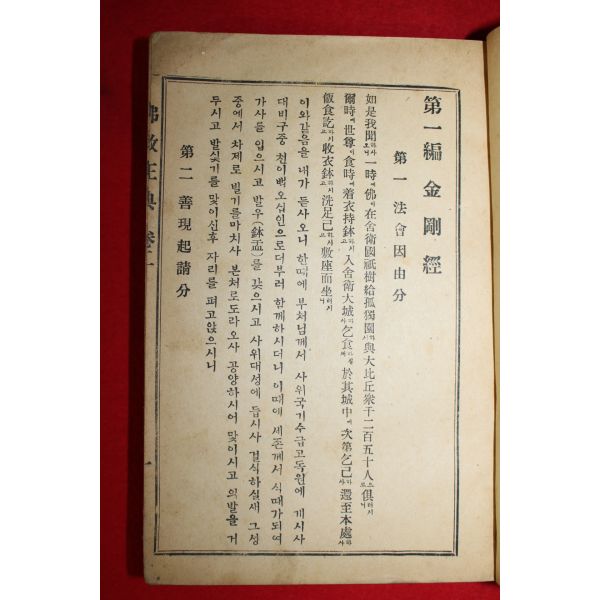 第一編 金剛經
第一 法會因由分
如是我聞하사오니 一時에 佛이 在舍衛國祇樹給孤獨園하시 與大比丘衆千二百五十人으로 俱러시니
爾時에 世尊이 食時에 着衣持鉢하시고 入舍衛大城하사 乞食하실새 於其城中에 次第乞已하사 還至本處하사
飯食訖하시고 收衣鉢하시고 洗足已하시고 敷座而坐러시니
이와같음을 내가 듣사오니 한때에 부처님께서 사위국기수급고독원에 게시사
대비구중 천이백오십인으로더부러 함께하시더니 이때에 세존께서 식때가되여
가사를 입으시고 발우(鉢盂)를 갖으시고 사위대성에 듭시사 걸식하실새 그성
중에서 차제로 빌기를마치사 본처로도라오사 공양하시어 맟이시고 의발을 거
두시고 발싳기를 맟이신후 자리를 펴고앉으시니
第二 善現起請分
佛敎正典 卷二
一